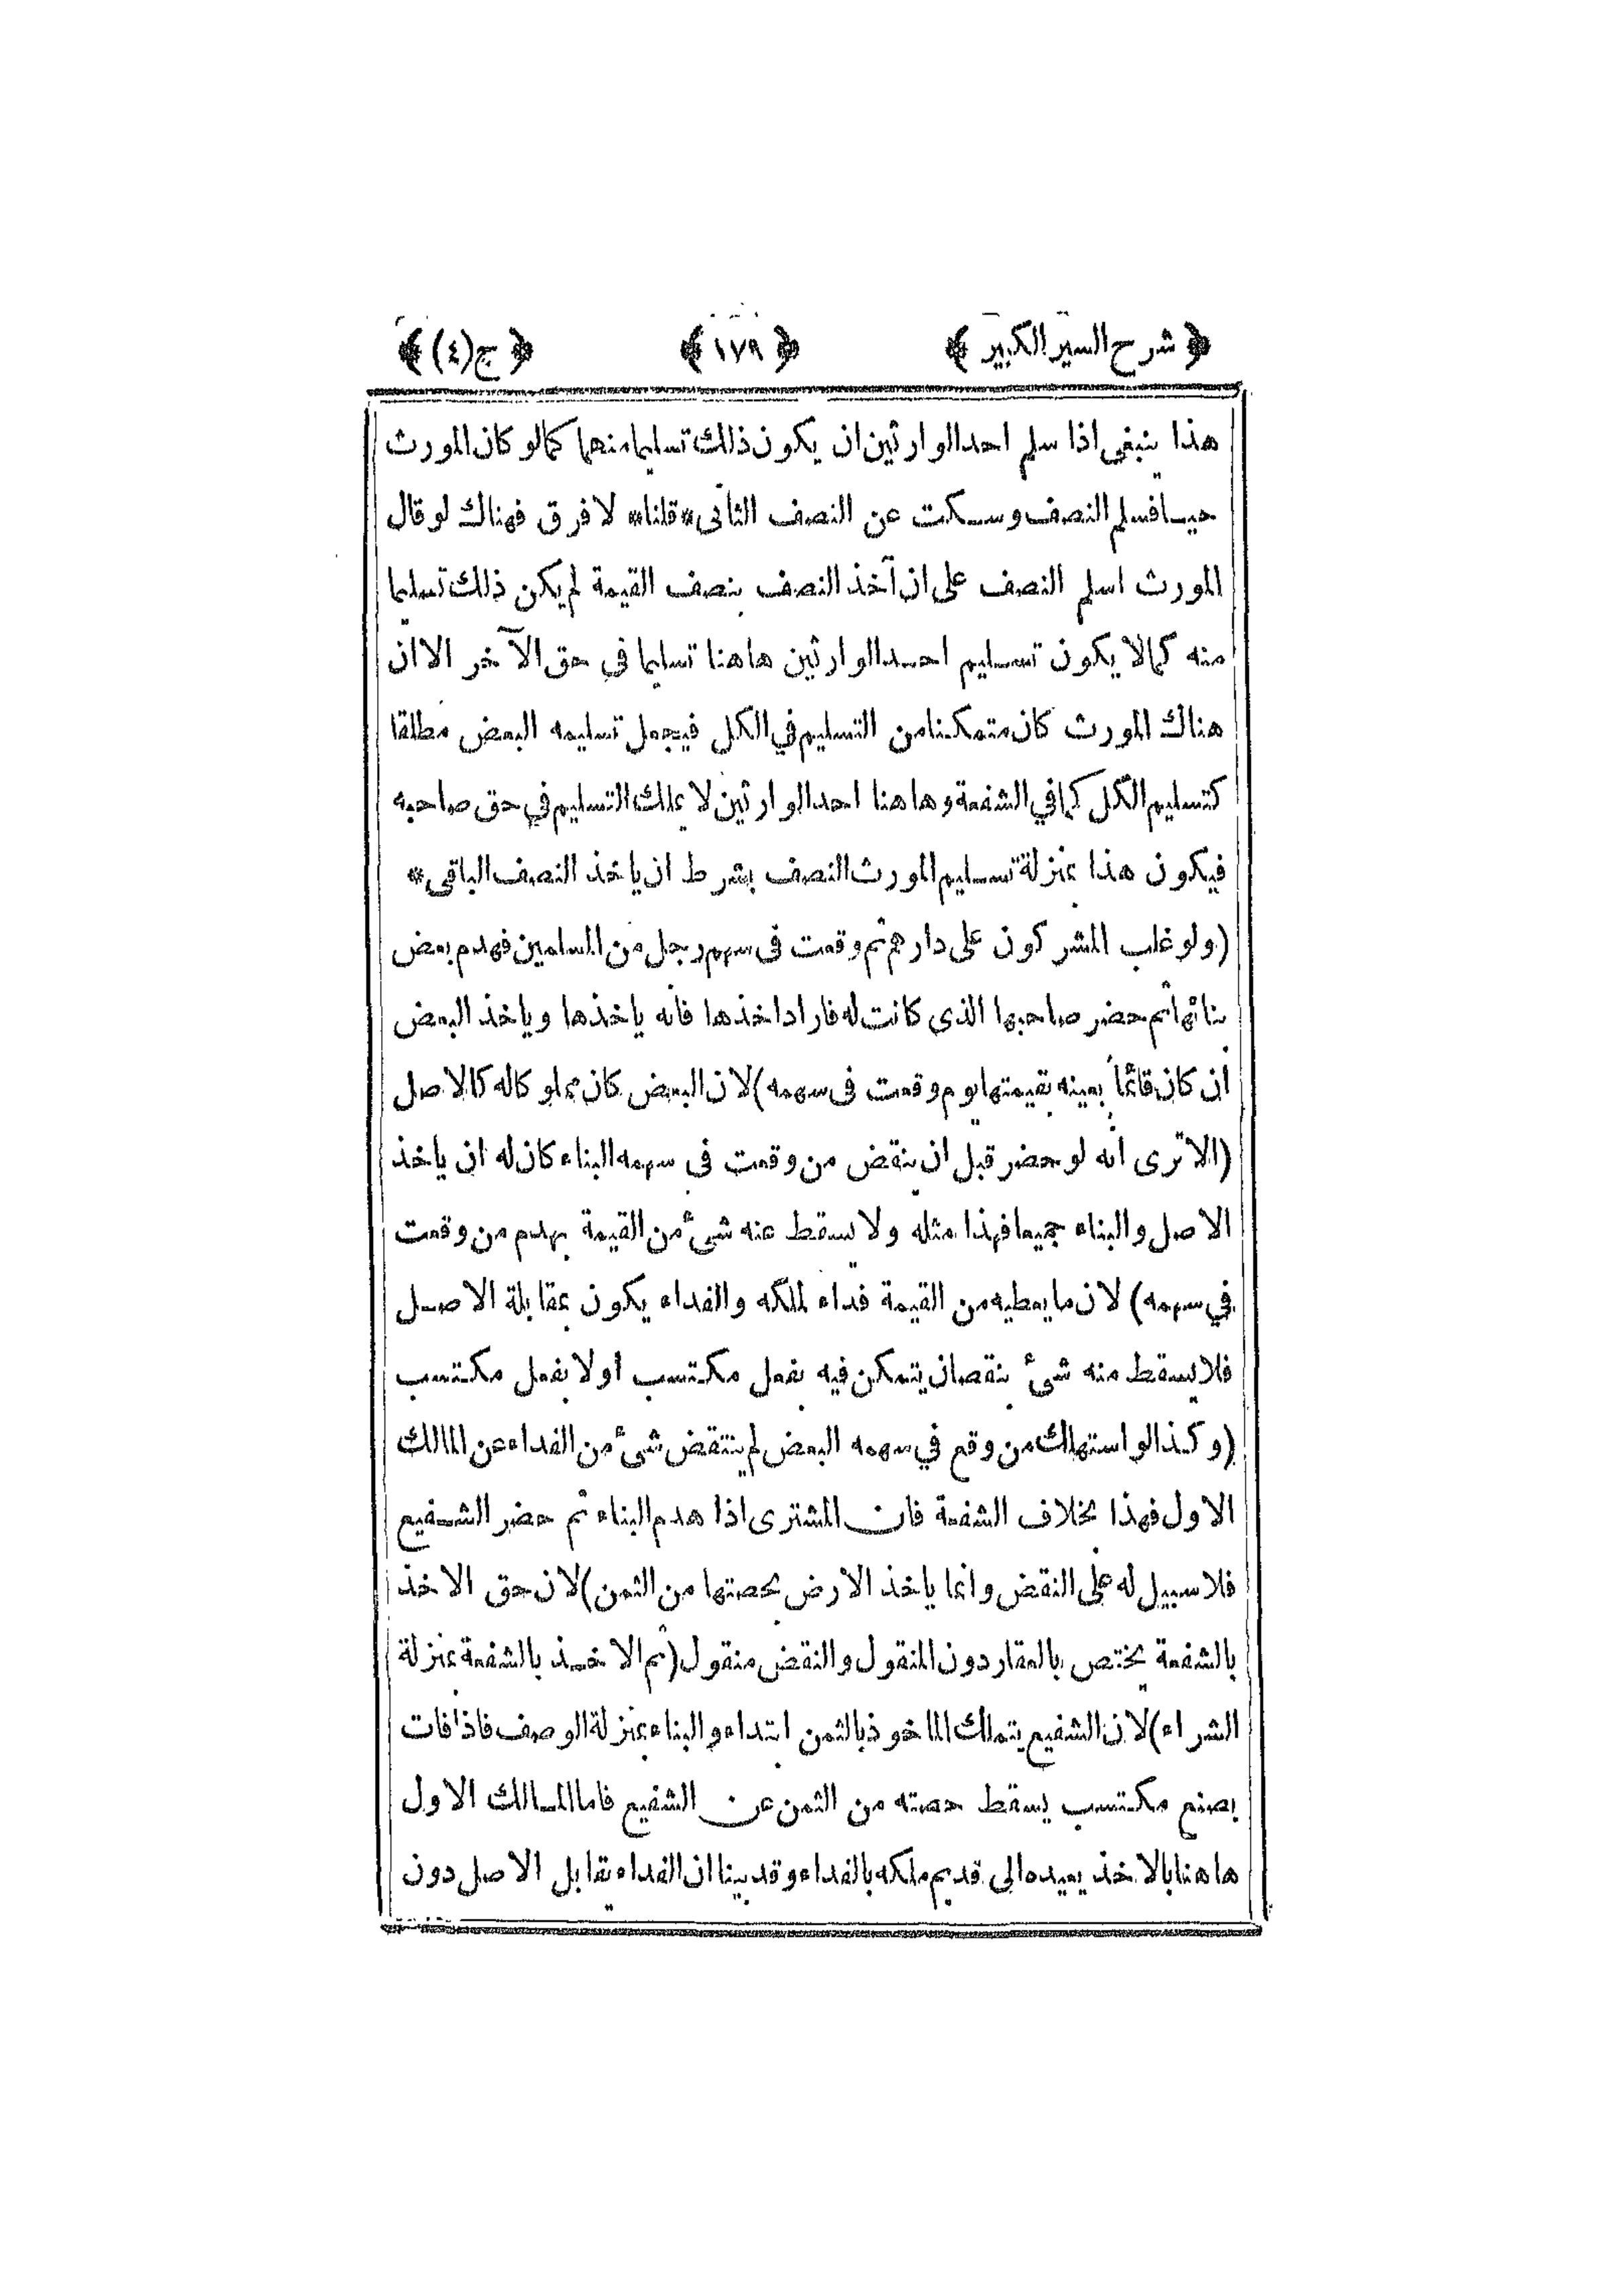 ﴿ شرح السير الكبير ﴾ ﴿ ١٧٩ ﴾ ﴿ ج(٤) ﴾
هذا ينبغى اذا سلم احد الوارثين ان يكون ذلك تسليما منهما كما لو كان المورث
حيا فسلم النصف وسكت عن النصف الثانى * قلنا * لا فرق فهناك لو قال
المورث اسلم النصف على ان آخذ النصف بنصف القيمة لم يكن ذلك تسليما
منه كما لا يكون تسليم احد الوارثين هاهنا تسليما فى حق الآخر الا ان
هناك المورث كان متمكنا من التسليم في الكل فيجعل تسليمه البعض مطلقا
كتسليم الكل كما في الشفعة وهاهنا احد الوارثين لا يملك التسليم في حق صاحبه
فيكون هذا بمنزلة تسليم المورث النصف بشرط ان ياخذ النصف الباقى *
(ولو غلب المشركون على دارهم ثم وقعت فى سهم رجل من المسلمين فهدم بعض
بنائها ثم حضر صاحبها الذى كانت له فاراد اخذها فانه ياخذها وياخذ البعض
ان كان قائماً بعينه بقيمتها يوم وقعت فى سهمه) لان البعض كان مملوكا له كالاصل
(الا ترى انه لو حضر قبل ان ينقض من وقعت فى سهمه البناء كان له ان ياخذ
الاصل والبناء جميعا فهذا مثله ولا يسقط عنه شئ من القيمة بهدم من وقعت
في سهمه) لان ما يعطيه من القيمة فداء لملكه والفداء يكون بمقابلة الاصل
فلا يسقط منه شئ بنقصان يتمكن فيه بفعل مكتسب او لا بفعل مكتسب
(وكذا لو استهلك من وقع في سهمه البعض لم ينتقض شئ من الفداء عن المالك
الاول فهذا بخلاف الشفعة فان المشترى اذا هدم البناء ثم حضر الشفيع
فلا سبيل له على النقض وانما ياخذ الارض بحصتها من الثمن) لان حق الاخذ
بالشفعة يختص بالعقار دون المنقول والنقض منقول (ثم الاخذ بالشفعة بمنزلة
الشراء) لان الشفيع يتملك الماخوذ بالثمن ابتداء والبناء بمنزلة الوصف فاذا فات
بصنع مكتسب يسقط حصته من الثمن عن الشفيع فاما المالك الاول
هاهنا بالاخذ يعيده الى قديم ملكه بالفداء وقد بينا ان الفداء يقابل الاصل دون